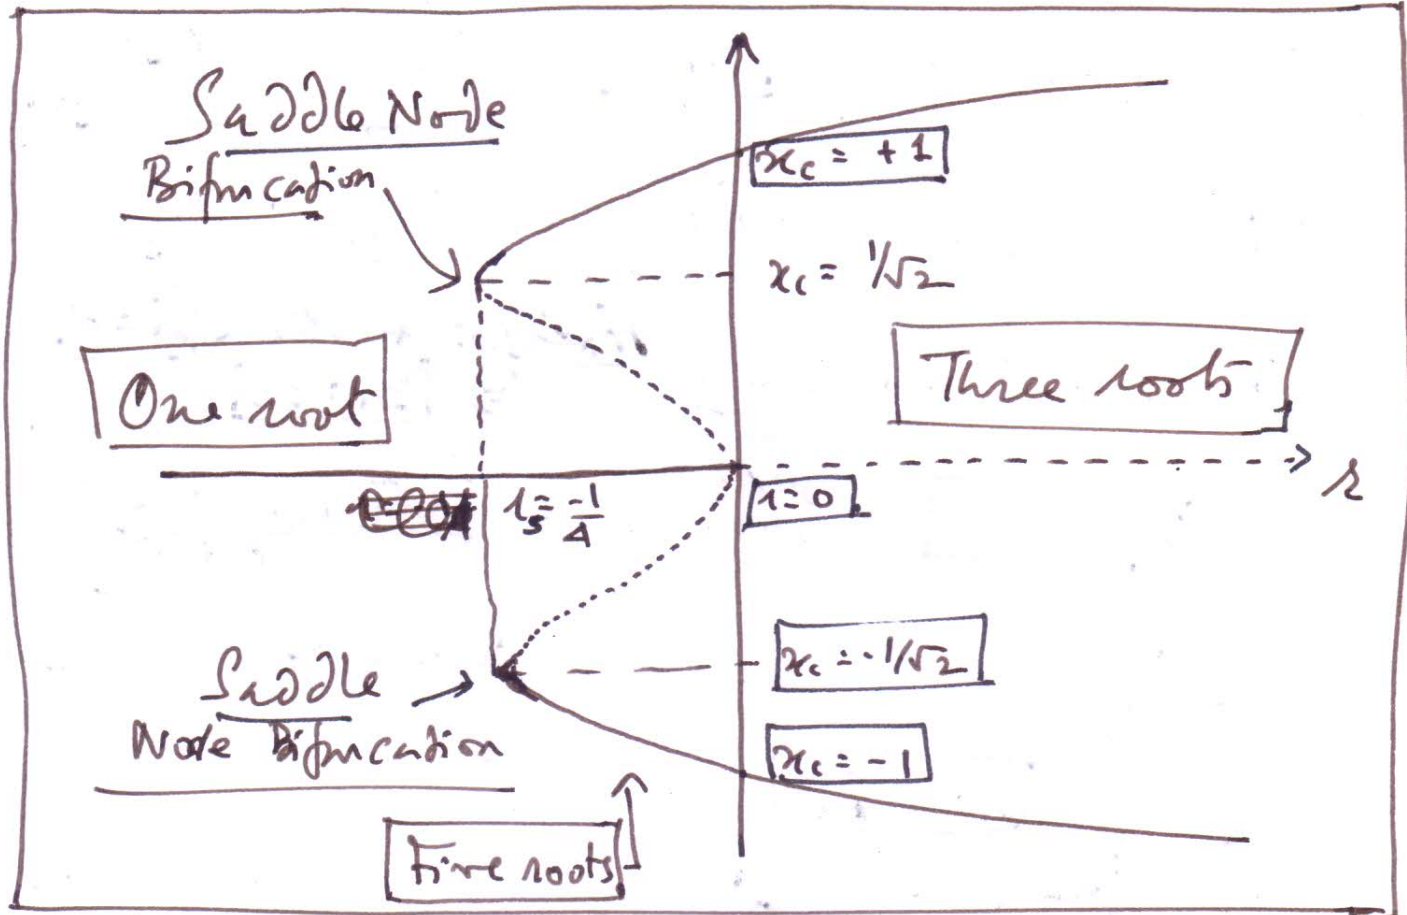 Saddle Node
Bifurcation
x_c = +1
x_c = 1/√2
One root
Three roots
r
r_s = -1/4
r=0
x_c = -1/√2
Saddle
Node Bifurcation
x_c = -1
Five roots